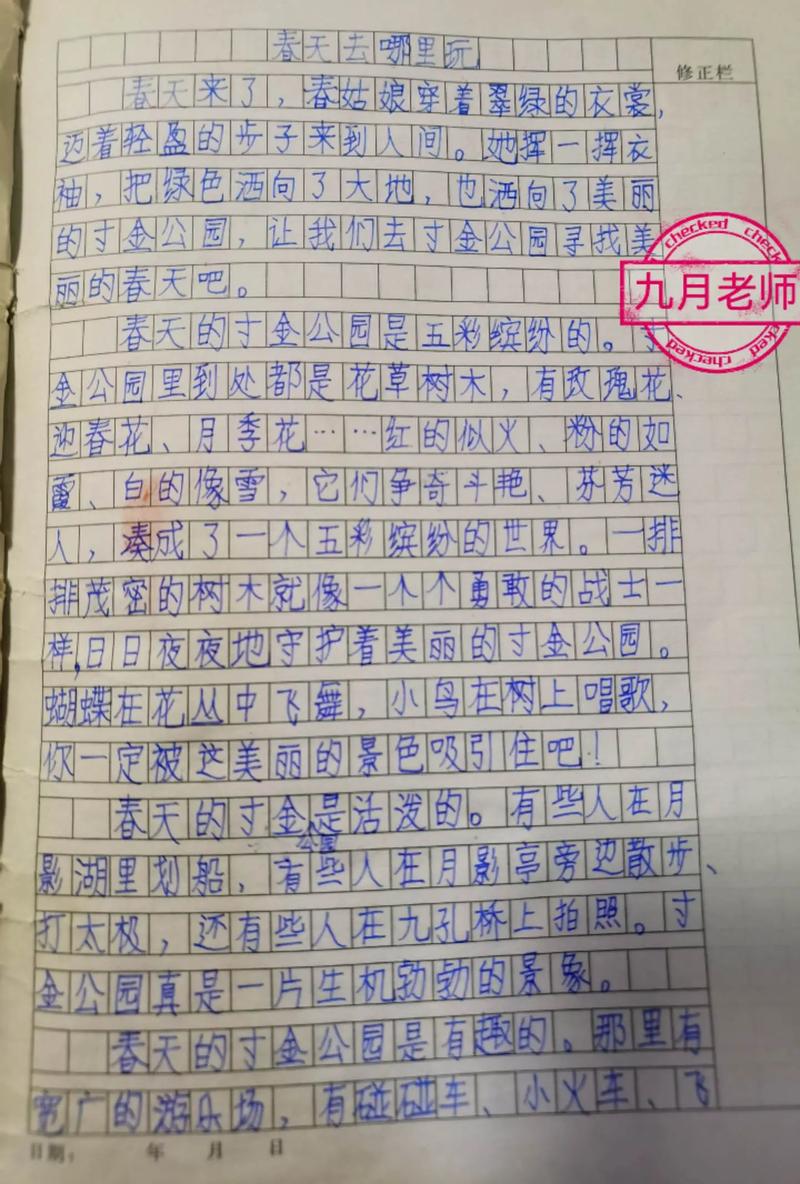 春天去哪里玩
修正栏
春天来了，春姑娘穿着翠绿的衣裳，
迈着轻盈的步子来到人间。她挥一挥衣
袖，把绿色洒向了大地，也洒向了美丽
的寸金公园，让我们去寸金公园寻找美
丽的春天吧。
checked checked
九月老师
checked checked
春天的寸金公园是五彩缤纷的。寸
金公园里到处都是花草树木，有玫瑰花、
迎春花、月季花……红的似火、粉的如
霞、白的像雪，它们争奇斗艳、芬芳迷
人，凑成了一个五彩缤纷的世界。一排
排茂密的树木就像一个个勇敢的战士一
样，日日夜夜地守护着美丽的寸金公园。
蝴蝶在花丛中飞舞，小鸟在树上唱歌，
你一定被这美丽的景色吸引住吧！
春天的寸金公园是活泼的。有些人在月
影湖里划船，有些人在月影亭旁边散步、
打太极，还有些人在九孔桥上拍照。寸
金公园真是一片生机勃勃的景象。
春天的寸金公园是有趣的。那里有
宽广的游乐场，有碰碰车、小火车、飞
日期： 年 月 日